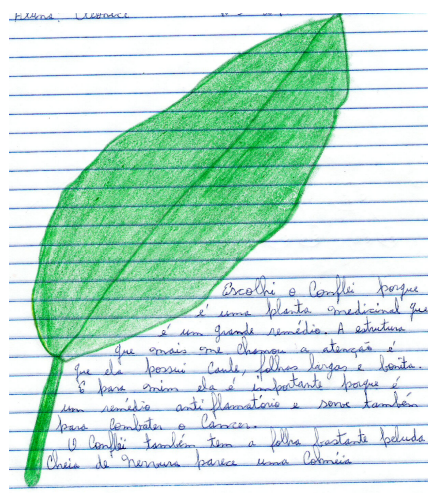 Escolhi o Conflei porque
é uma planta medicinal que
é um grande remédio. A estrutura
que mais me chamou a atenção é
que ela possui Caule, folhas largas e bonita.
E para mim ela é importante porque é
um remédio anti flamatório e serve também
para Combater o Cancer.
O Conflei também tem a folha bastante peluda
Cheia de nervura parece uma Colméia